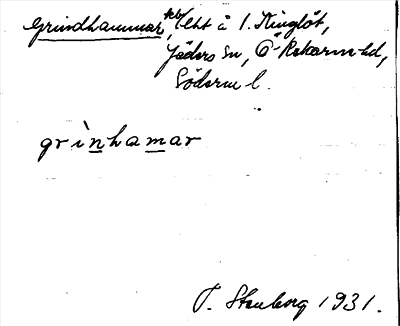 Grindhammar, tb/lht å 1. Kinglöt,
Jäders sn, Ö-Rekarne hd,
Söderm l.
grìnhamar
P. Stenborg 1931.